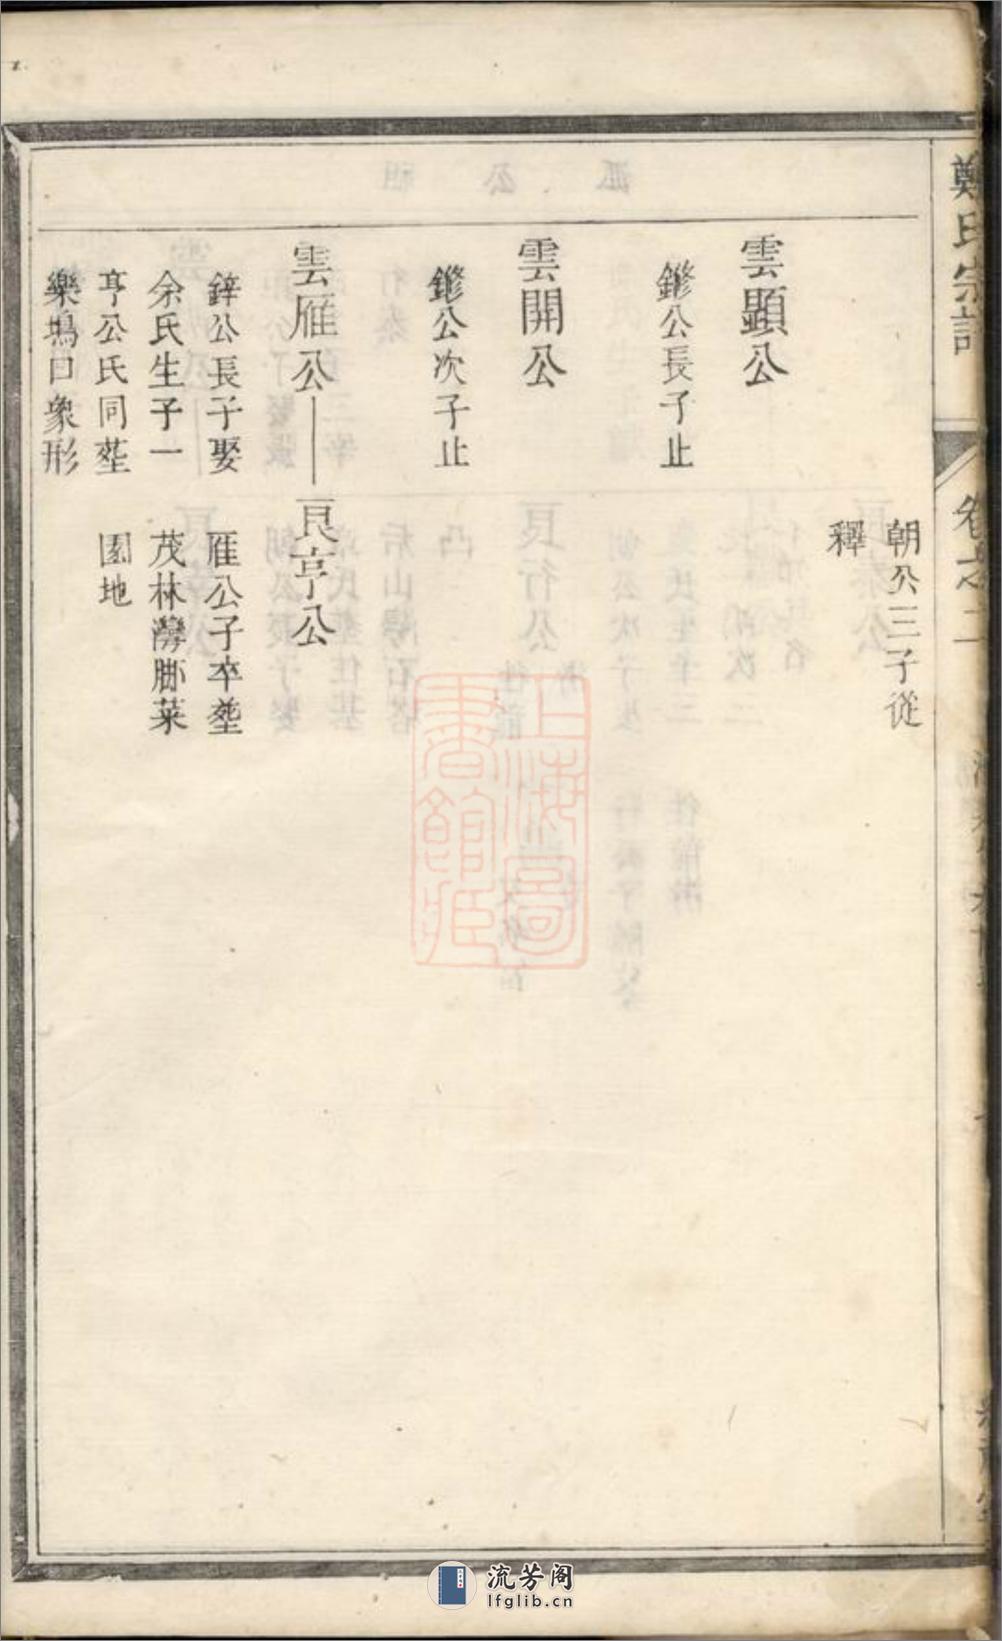 鄭氏宗譜
卷之二
朝公三子從
釋
雲顯公
鏒公長子止
雲開公
鏒公次子止
雲雁公
良亨公
鋅公長子娶
余氏生子一
亨公氏同塟
樂塢口象形
雁公子卒塟
茂林灣腳菜
園地
上海圖
書館藏
流芳阁
lfglib.cn